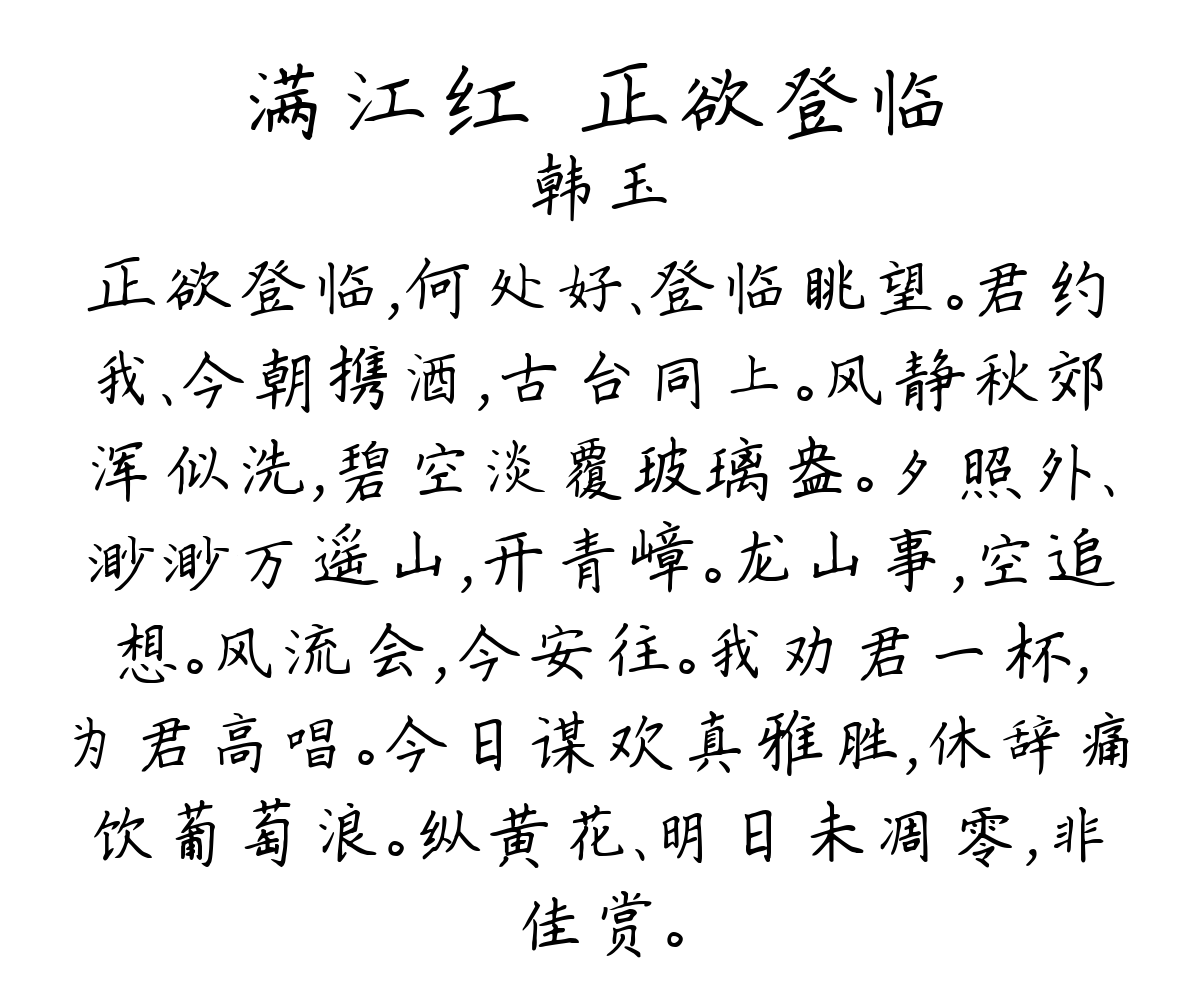 满江红 正欲登临
韩玉
正欲登临,何处好、登临眺望。君约
我、今朝携酒,古台同上。风静秋郊
浑似洗,碧空淡覆玻璃盎。夕照外、
渺渺万遥山,开青嶂。龙山事,空追
想。风流会,今安往。我劝君一杯,
为君高唱。今日谋欢真雅胜,休辞痛
饮葡萄浪。纵黄花、明日未凋零,非
佳赏。